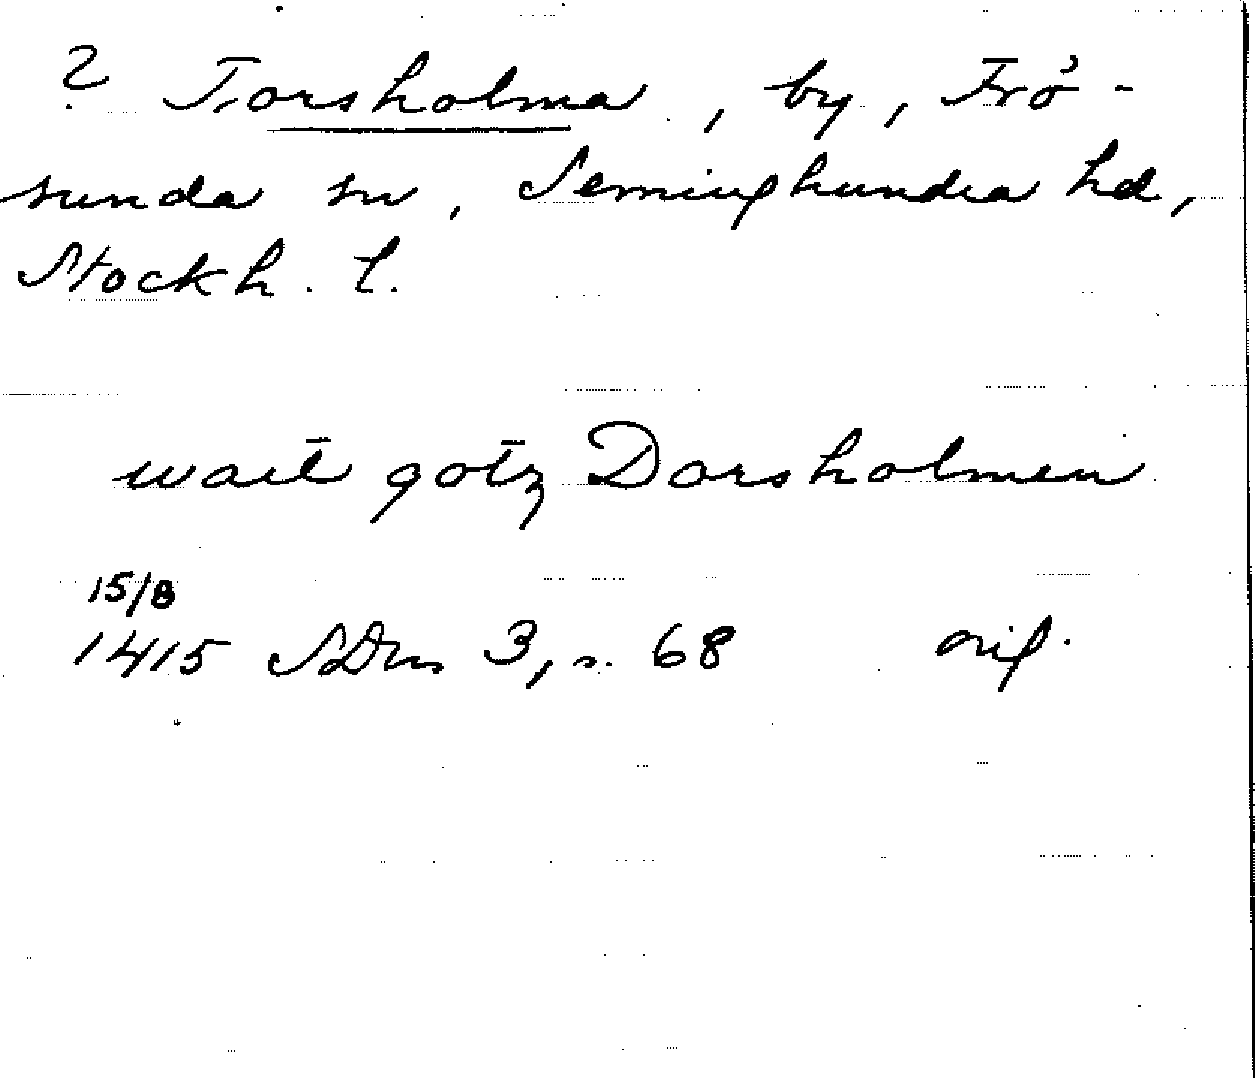 ? Torsholma, by, Frö-
sunda sn, Seminghundra hd,
Stockh. l.
wart̄ götz Dorsholmen
15/8
1415 SDns 3, s. 68 orig.